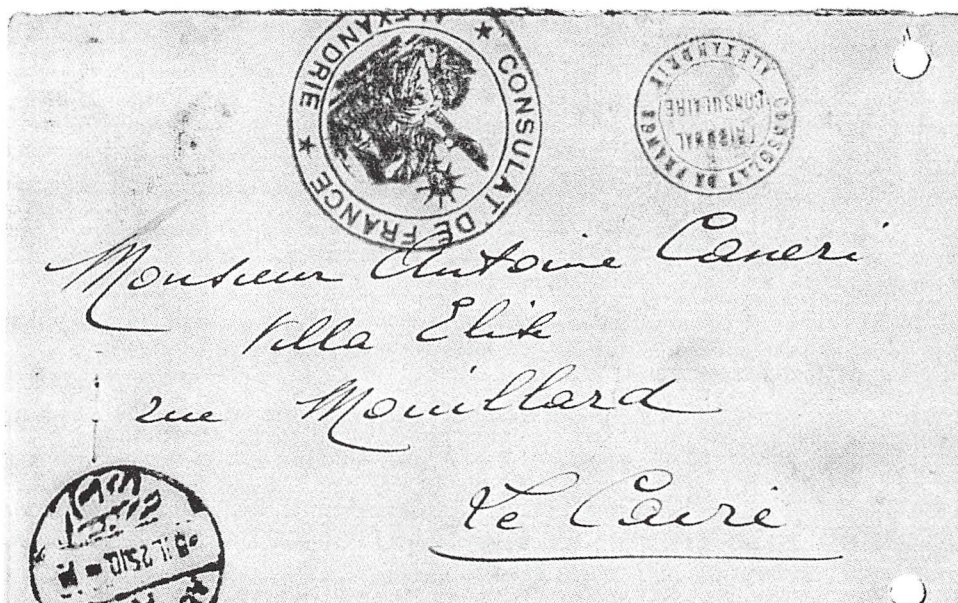 CONSULAT DE FRANCE ★ ALEXANDRIE ★
CONSULAT DE FRANCE ALEXANDRIE
TRIBUNAL
CONSULAIRE
Monsieur Antoine Caneri
Villa Elite
rue Mouillard
Le Caire